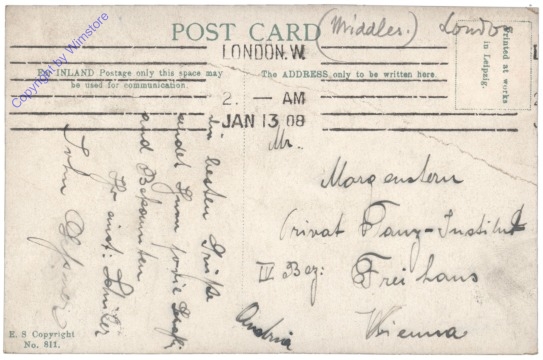 POST CARD
(Middles.) London
Printed at works
in Leipzig.
LONDON. W.
For INLAND Postage only this space may
be used for communication.
The ADDRESS only to be written here.
2. - AM
JAN 13 08
Mr.
Morgenstern
Privat Tanz-Institut
IV Bez: Freihaus
Wienna
Austria
besten Grüße
und Bekannten
Ihr einst: Schüler
John
E. S Copyright
No. 811.
Copyright by Wimstore